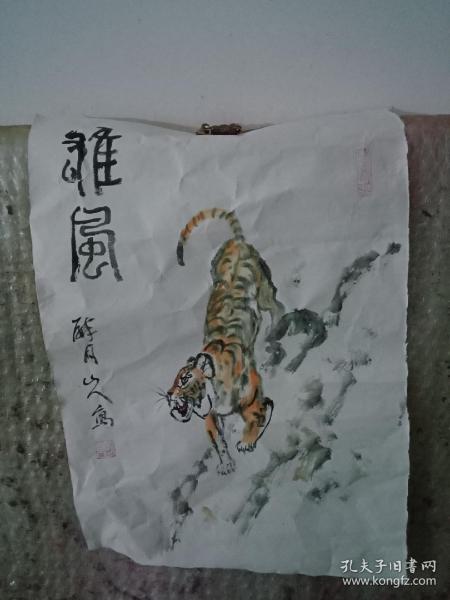 雄风
醉月山人写
孔夫子旧书网
www.kongfz.com